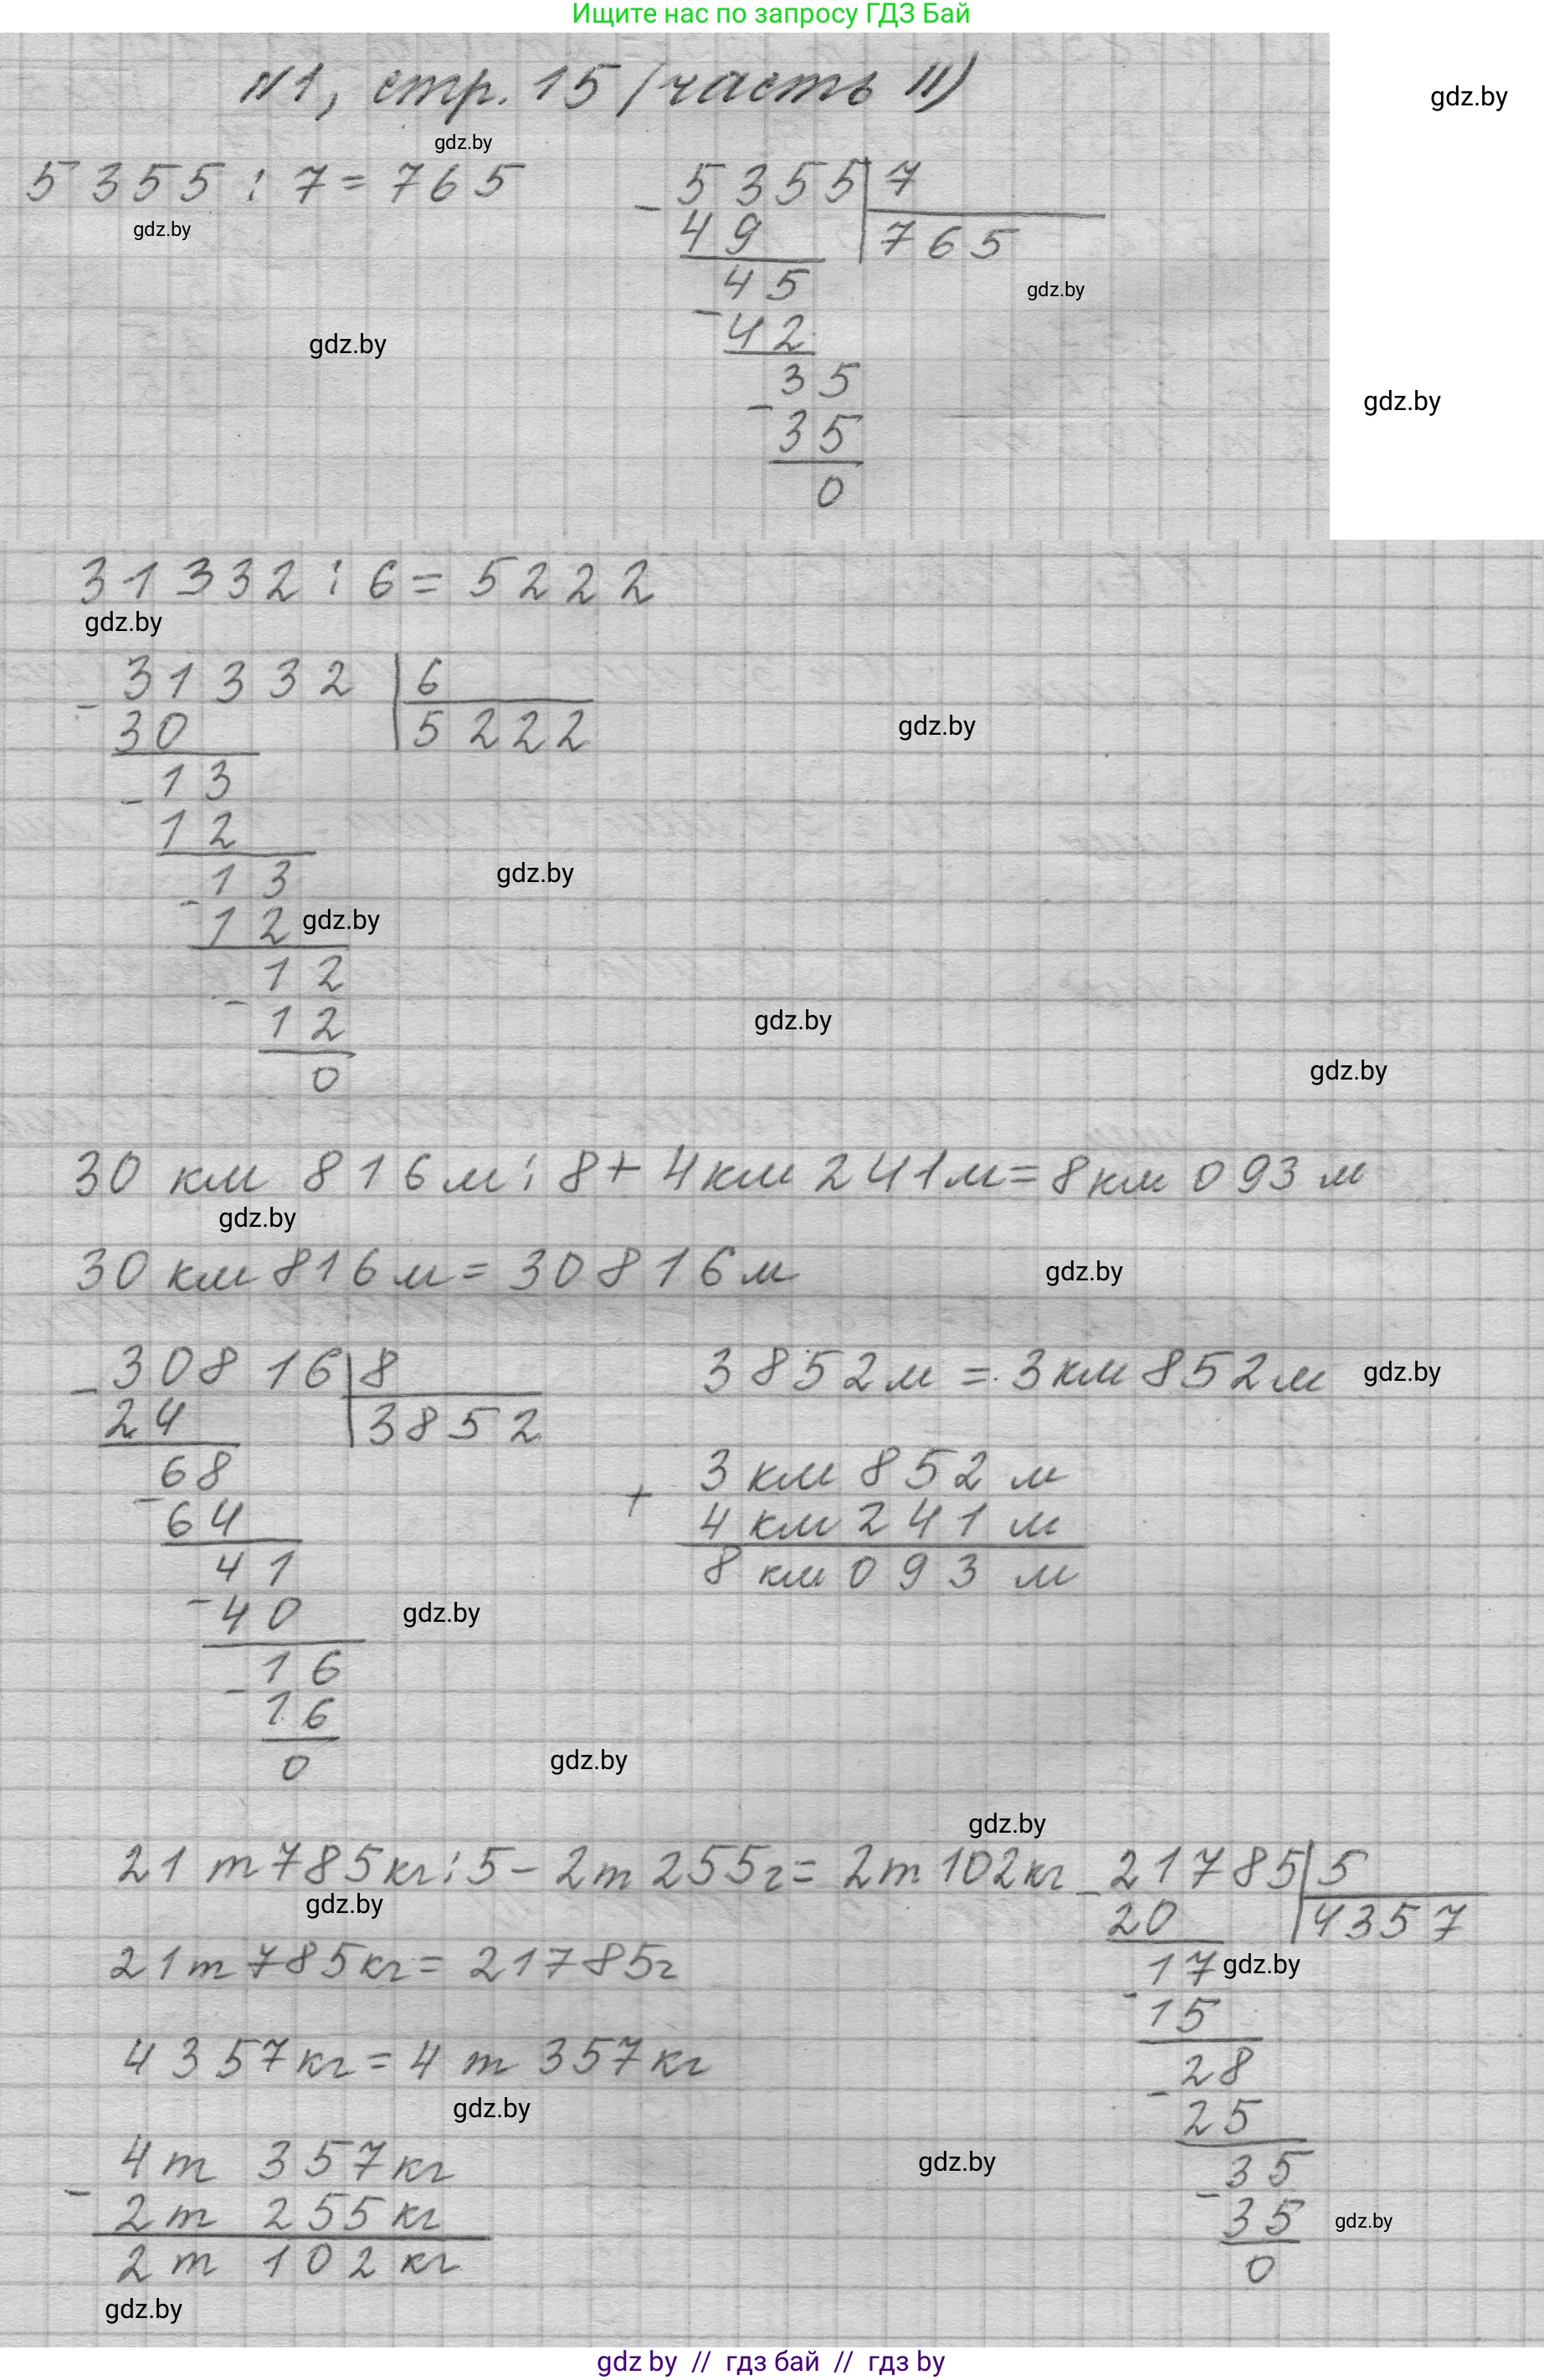 Ищите нас по запросу ГДЗ Бай
№1, стр. 15 (часть II)
gdz.by
gdz.by
5355 : 7 = 765
gdz.by
- 5355 | 7
49 | 765
45
- 42
35
- 35
0
gdz.by
gdz.by
gdz.by
31332 : 6 = 5222
gdz.by
- 31332 | 6
30 | 5222
gdz.by
- 13
12
- 13
gdz.by
12
gdz.by
- 12
12
gdz.by
0
gdz.by
30 км 816 м : 8 + 4 км 241 м = 8 км 093 м
gdz.by
30 км 816 м = 30816 м
gdz.by
- 30816 | 8
24 | 3852
- 68
64
41
- 40
- 16
16
0
3852 м = 3 км 852 м
gdz.by
+ 3 км 852 м
4 км 241 м
8 км 093 м
gdz.by
gdz.by
gdz.by
21 т 785 кг : 5 - 2 т 255 г = 2 т 102 кг
gdz.by
21 т 785 кг = 21785 г
4357 кг = 4 т 357 кг
gdz.by
- 4 т 357 кг
2 т 255 кг
2 т 102 кг
gdz.by
- 21785 | 5
20 | 4357
17
gdz.by
- 15
28
- 25
35
gdz.by
- 35
gdz.by
0
gdz by // гдз бай // гдз by